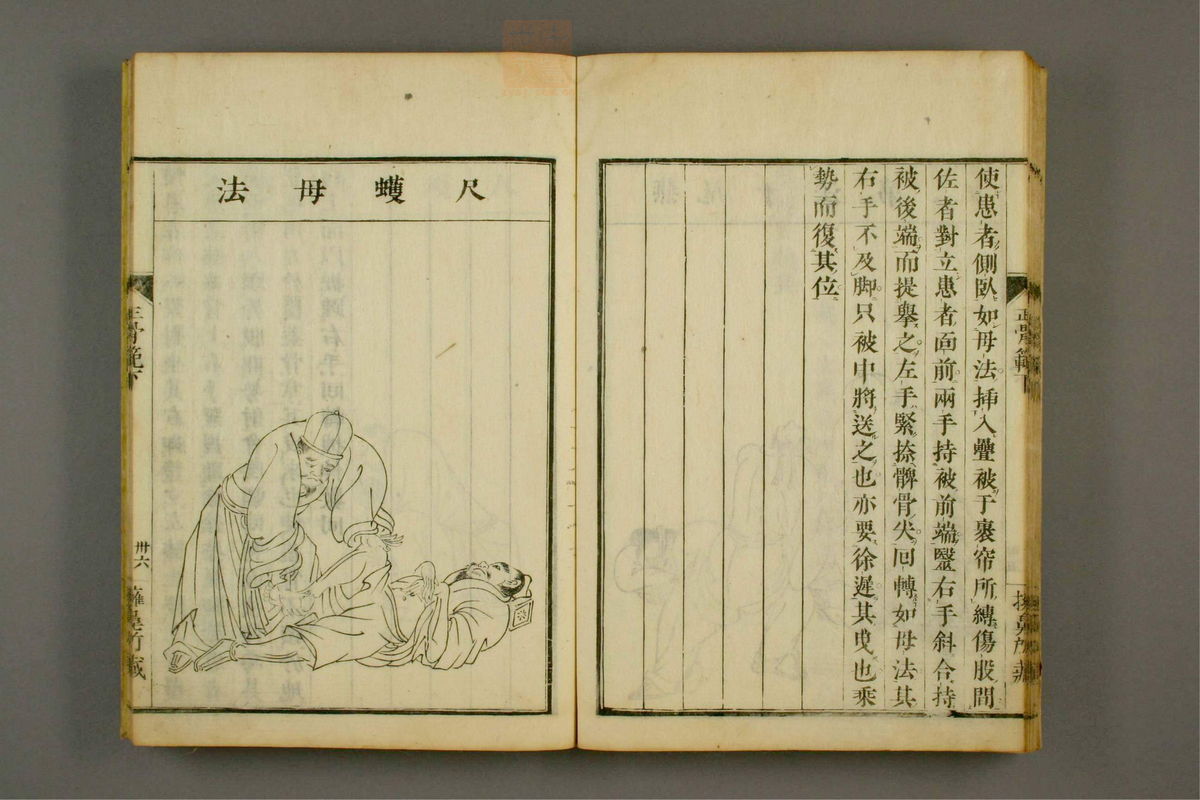 使患者側臥如母法揷入疊被于裹帘所縛傷股間
佐者對立患者面前兩手持被前端毉右手斜合持
被後端而提擧之左手緊捺髀骨尖回轉如母法其
右手不及脚只被中將送之也亦要徐遲其曳也乘
勢而復其位
正骨範下
尺蠖母法
正骨範下
卅六